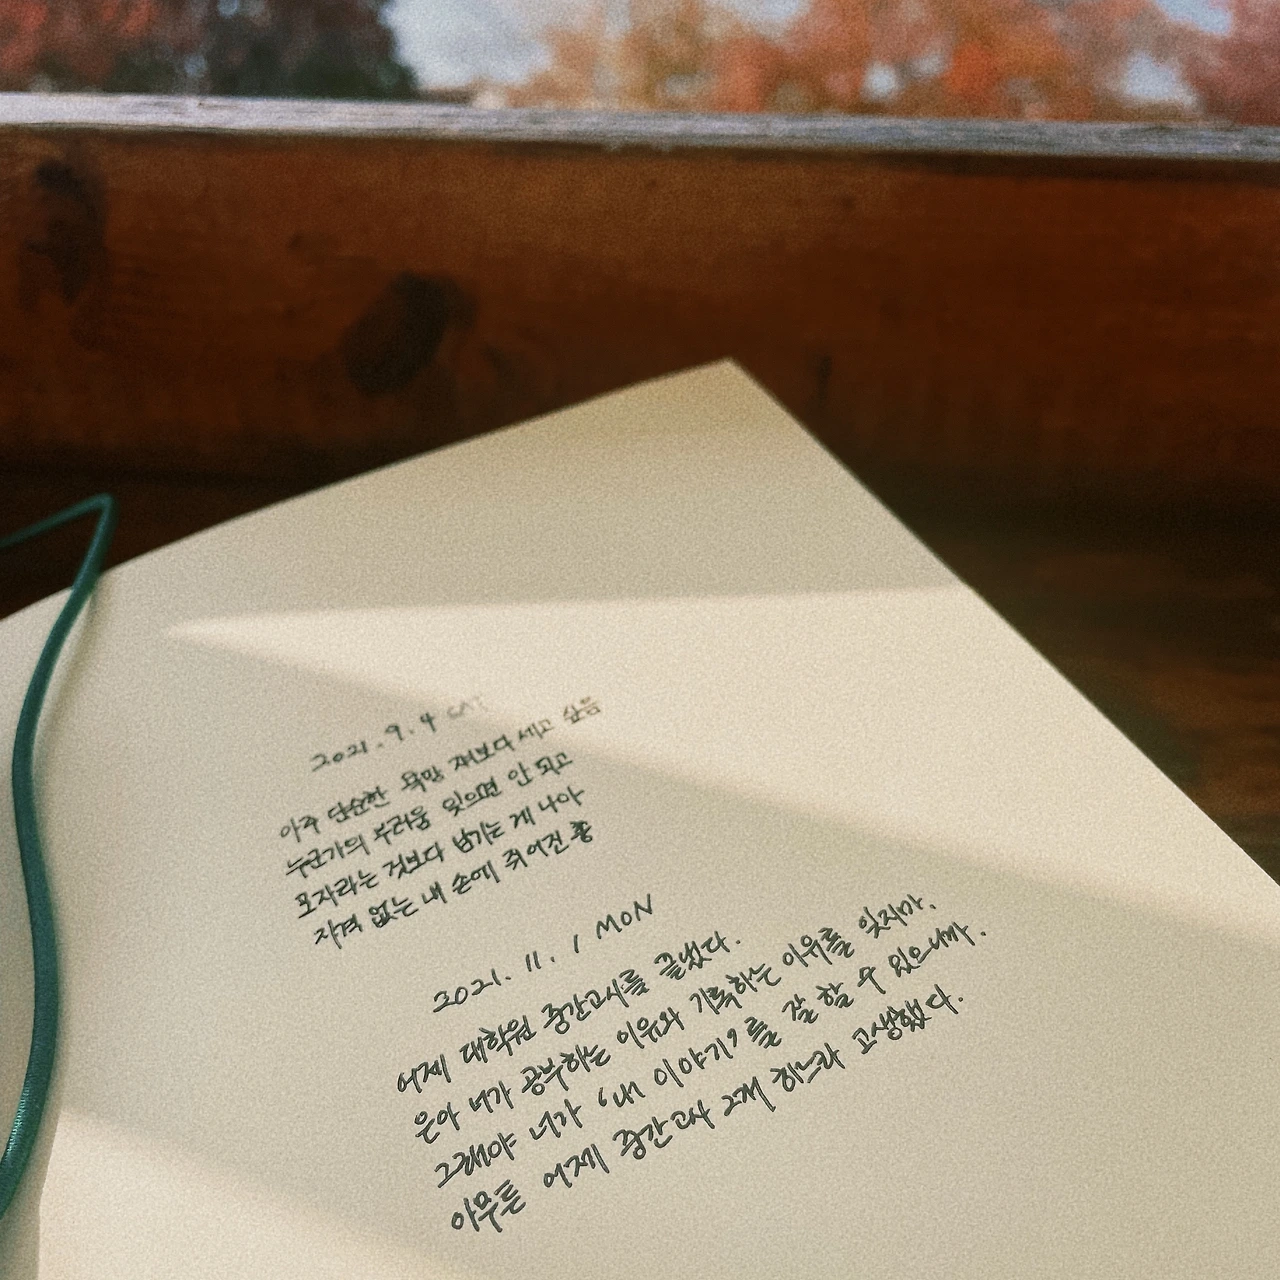 2021.9.4 SAT
아주 단순한 욕망 재보다 세고 싶음
누군가의 부러움 잊으면 안 되고
모자라는 것보다 남기는 게 나아
자격 없는 내 손에 쥐어진 총
2021. 11. 1 MON
어제 대학원 중간고사를 끝냈다.
은아 너가 공부하는 이유와 기록하는 이유를 잊지마.
그래야 너가 '내 이야기'를 잘 할 수 있으니까.
아무튼 어제 중간고사 2개 하느라 고생했다.